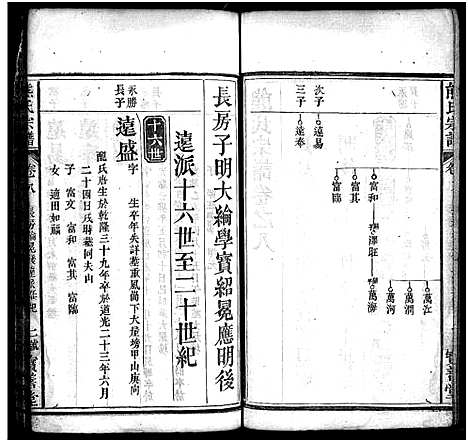 熊氏宗譜
次子
遠易
三子
遠奉
富和
澤旺
萬江
萬潤
萬河
萬海
富其
富臨
長房子明大綸學實紹冕應明後
遠派十六世至二十世紀
十六世
永勝長子
遠盛
字 生卒年失詳葬重風尚下大屋塝甲山庚向
配氏唐生於乾隆三十九年卒於道光二十三年六月
二十四日戌時葬同夫山
子 富文 富和 富其 富臨
女 適田如福
熊氏宗譜
卷八
寶善堂